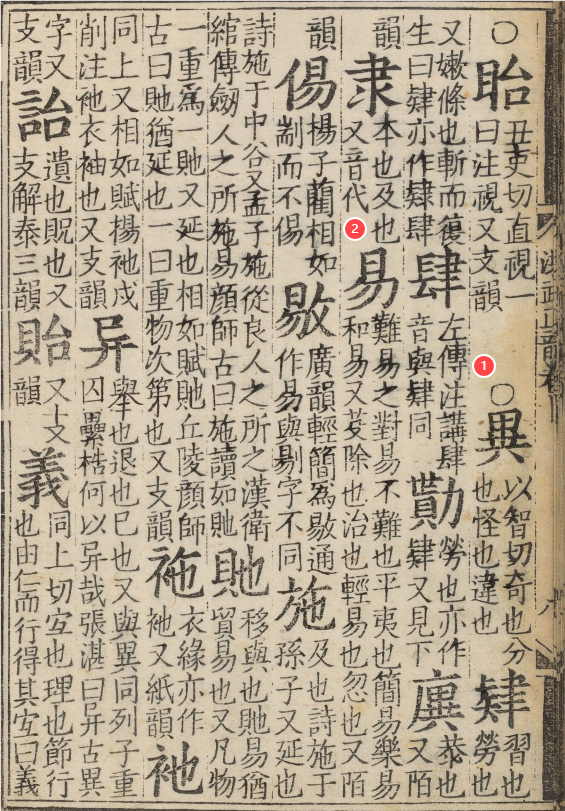 ○眙丑吏切直視一曰注視又支韻 ○異以智切奇也分也怪也違也 肄習也勞也
又嫰條也斬而復生曰肄亦作肄肆 肆左傳注講肆音與肄同 勩勞也亦作肄又見下 廙恭也又陌
韻 隶本也及也又音代 易難易之對易不難也平夷也簡易樂易和易又芟除也治也輕易也忽也又陌
韻 㑥楊子藺相如剬而不㑥 敡廣韻輕簡為敡通作易與剔字不同 施及也詩施于孫子又延也
詩施于中谷又孟子施從良人之所之漢衛綰傳劔人之所施易顔師古曰施讀如貤 貤移與也貤易猶貿易也又凡物
一重為一貤又延也相如賦貤丘陵顔師古曰貤猶延也一曰重物次第也又支韻 袘衣緣亦作衪又紙韻 衪
同上又相如賦揚衪戍削注衪衣袖也又支韻 异舉也退也已也又與異同列子重囚纍梏何以异哉張湛曰异古異
字又支韻 詒遺也貺也又支解泰三韻 貽又支韻 義同上切宜也理也節行也由仁而行得其宜曰義
1
2